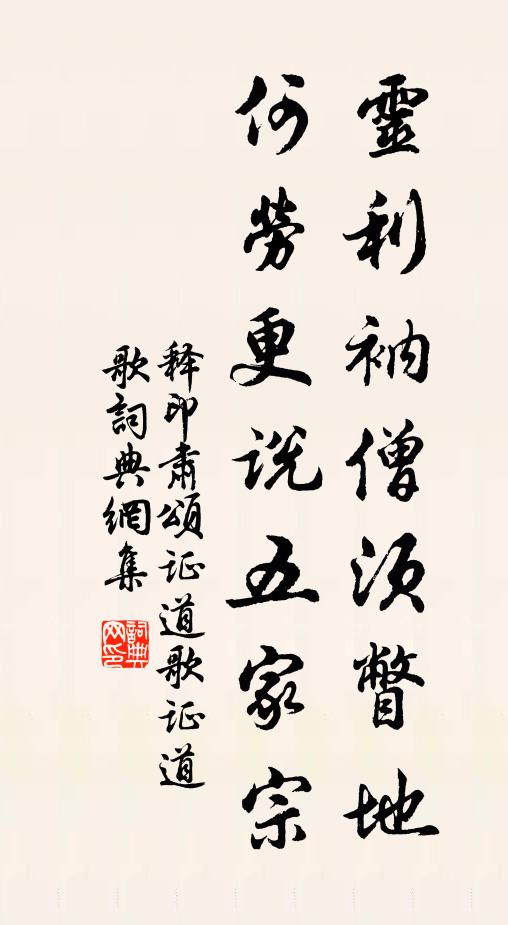 靈利衲僧須瞥地
何勞更说五家宗
释印肅頌证道歌证道
歌詞典網集
詞典网印